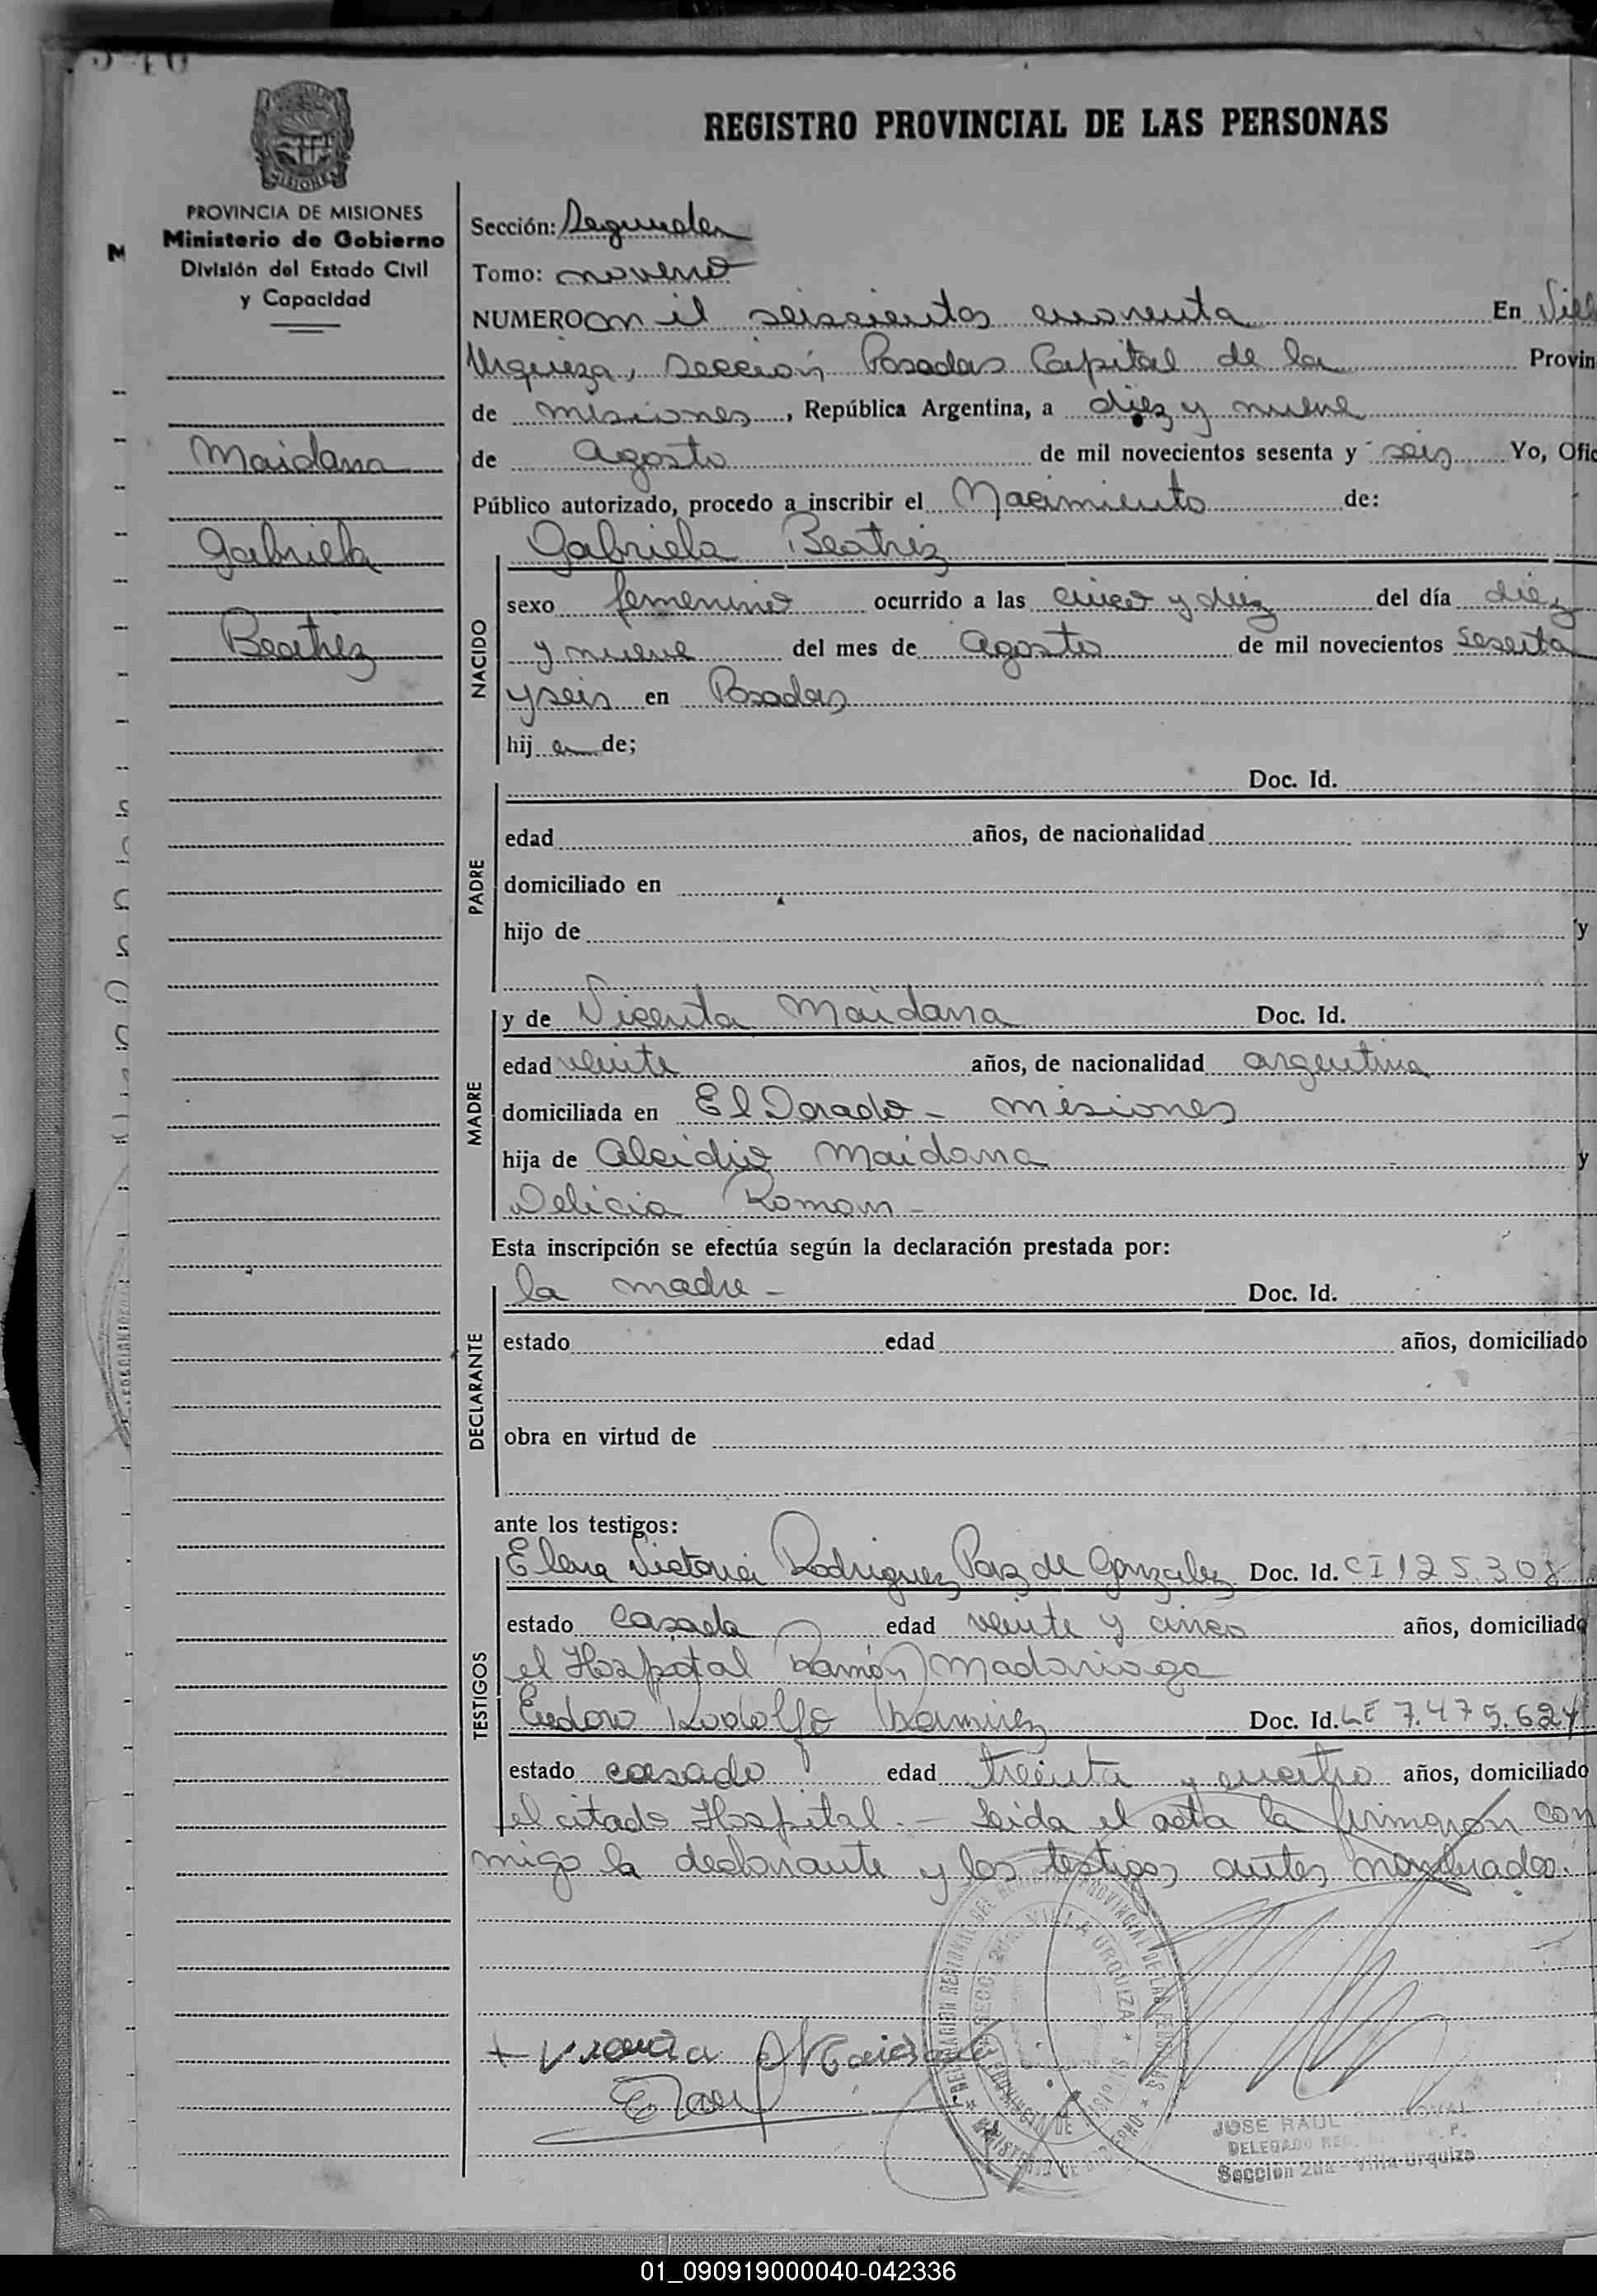 REGISTRO PROVINCIAL DE LAS PERSONAS
MISIONES
PROVINCIA DE MISIONES
Ministerio de Gobierno
División del Estado Civil
y Capacidad
Maidana
Gabriela
Beatriz
Sección: Segunda
Tomo: noveno
NUMERO mil seiscientos cuarenta En Vill
Urquiza, sección Posadas Capital de la Provin
de misiones, República Argentina, a diez y nueve
de Agosto de mil novecientos sesenta y seis Yo, Ofic
Público autorizado, procedo a inscribir el Nacimiento de:
Gabriela Beatriz
NACIDO
sexo femenino ocurrido a las cinco y diez del día diez
y nueve del mes de Agosto de mil novecientos sesenta
y seis en Posadas
hij a de;
PADRE
Doc. Id.
edad años, de nacionalidad
domiciliado en
hijo de y
MADRE
y de Vicenta Maidana Doc. Id.
edad veinte años, de nacionalidad argentina
domiciliada en El Dorado - misiones
hija de Alcidio Maidana y
Delicia Roman -
Esta inscripción se efectúa según la declaración prestada por:
DECLARANTE
la madre - Doc. Id.
estado edad años, domiciliado
obra en virtud de
ante los testigos:
TESTIGOS
Elena Victoria Rodriguez Paz de Gonzalez Doc. Id. CI 125.308
estado casada edad veinte y cinco años, domiciliado
el Hospital Ramón Madariaga
Eudoro Rodolfo Ramirez Doc. Id. LE 7.475.624
estado casado edad treinta y cuatro años, domiciliado
el citado Hospital. - Leida el acta la firmaron con
migo la declarante y los testigos antes nombrados.
VILLA URQUIZA
+ Vicenta Maidana
JOSE RAUL SANDOVAL
DELEGADO
Sección 2da - Villa Urquiza
01_090919000040-042336